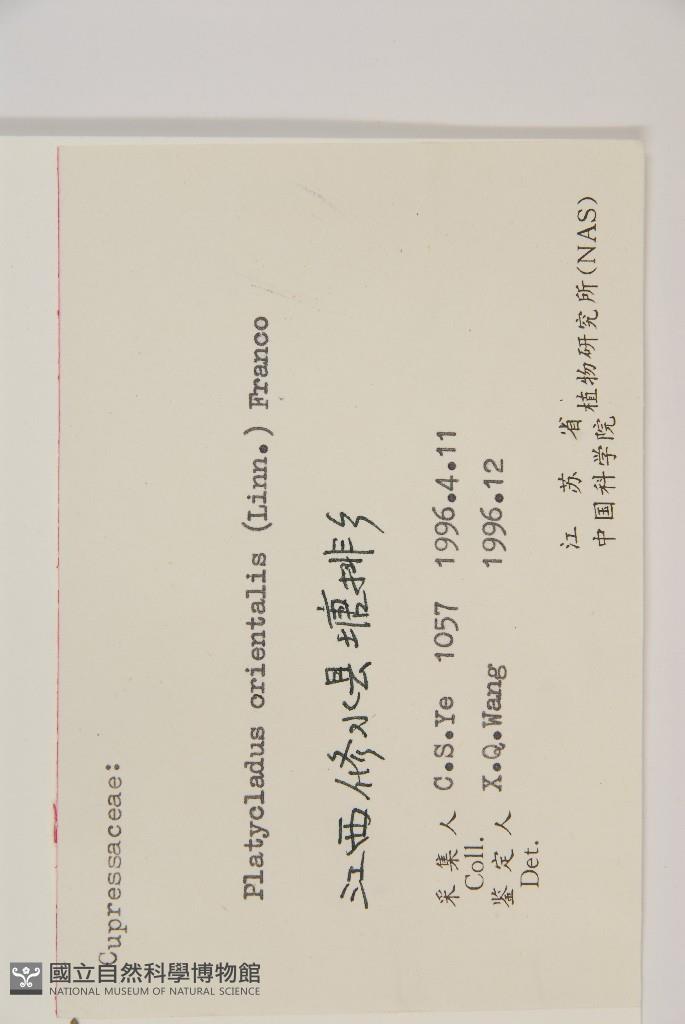 Cupressaceae:
Platycladus orientalis (Linn.) Franco
江西修水县塘排乡
采集人 C.S.Ye 1057 1996.4.11
Coll.
鉴定人 X.Q.Wang 1996.12
Det.
江苏省
中国科学院植物研究所(NAS)
國立自然科學博物館
NATIONAL MUSEUM OF NATURAL SCIENCE